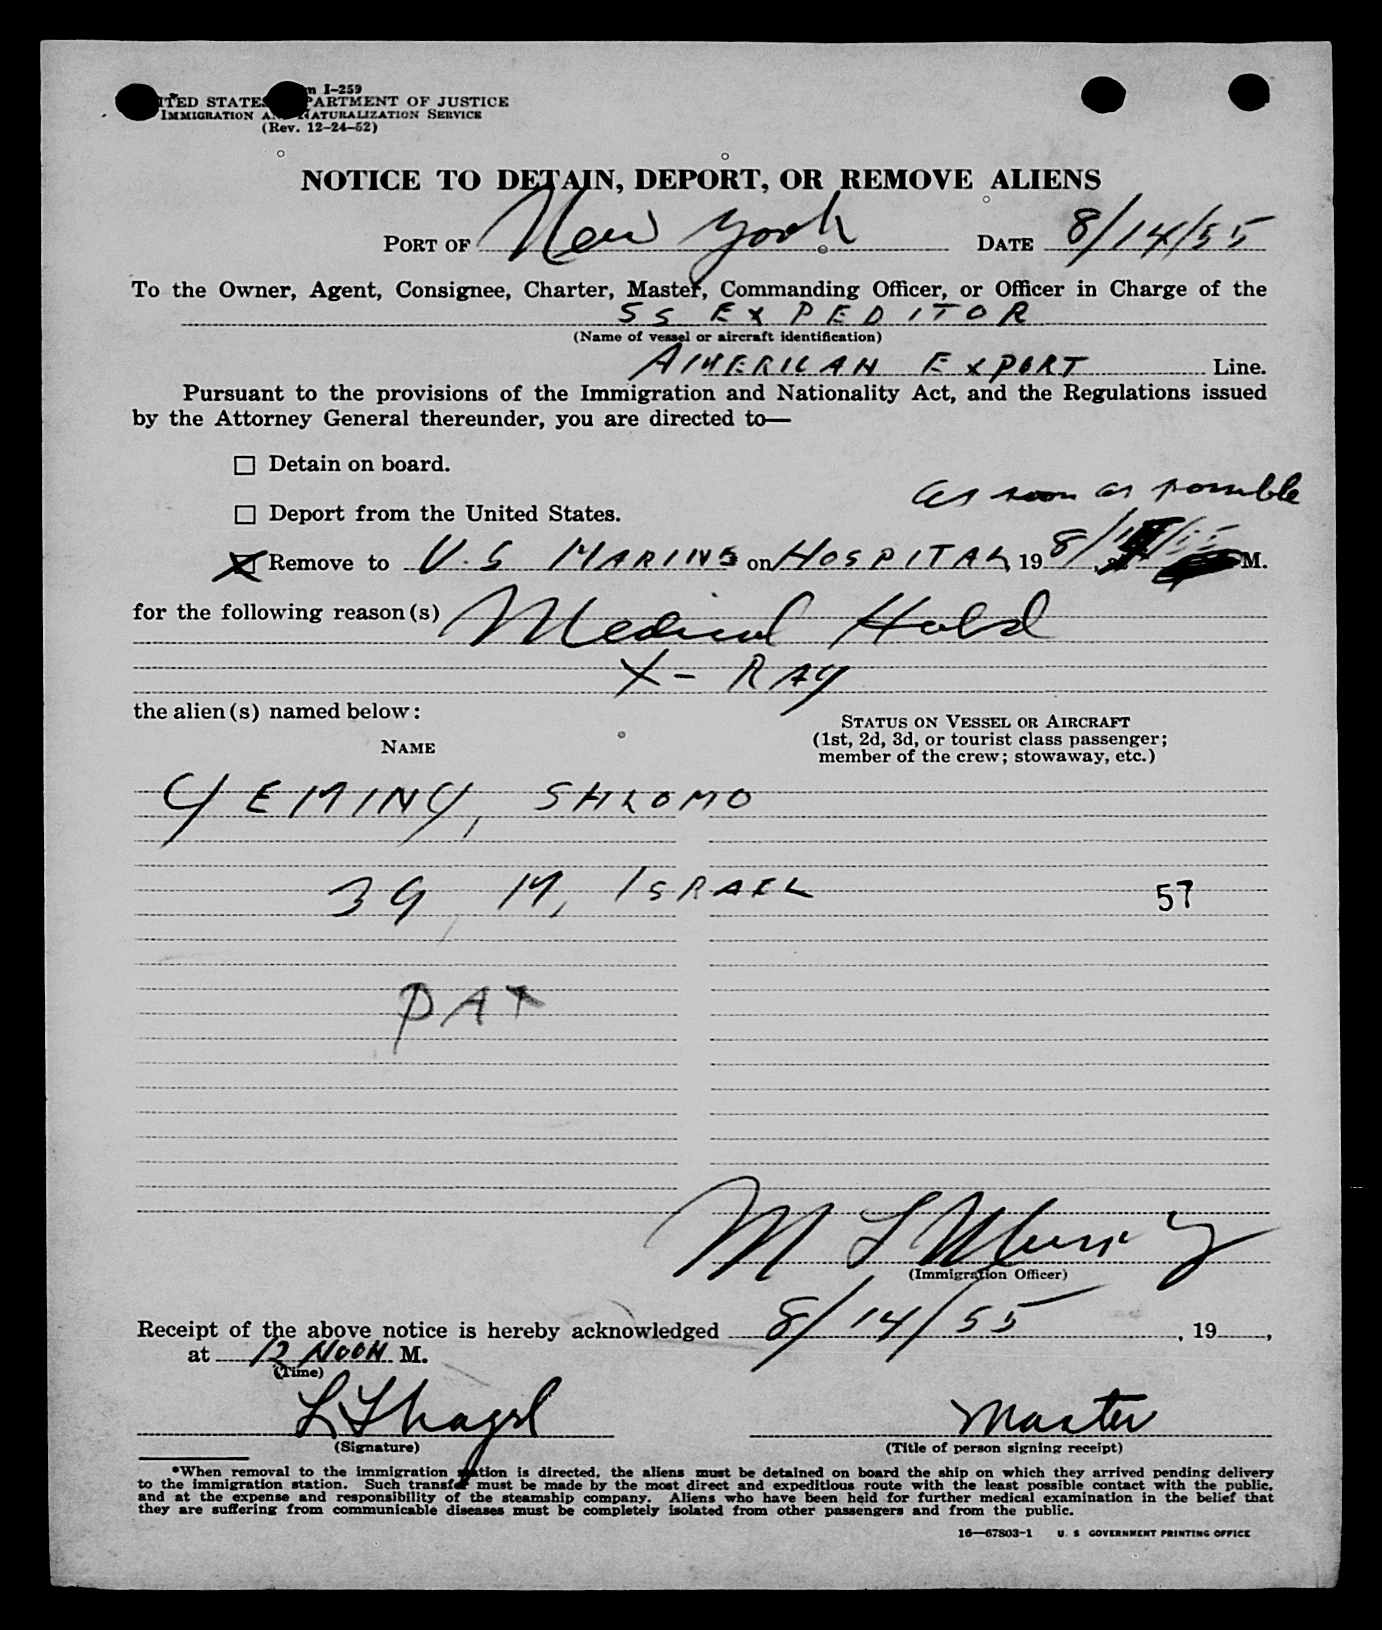 Form I-259
UNITED STATES DEPARTMENT OF JUSTICE
IMMIGRATION AND NATURALIZATION SERVICE
(Rev. 12-24-52)
NOTICE TO DETAIN, DEPORT, OR REMOVE ALIENS
PORT OF New York DATE 8/14/55
To the Owner, Agent, Consignee, Charter, Master, Commanding Officer, or Officer in Charge of the
SS EXPEDITOR
(Name of vessel or aircraft identification)
AMERICAN EXPORT Line.
Pursuant to the provisions of the Immigration and Nationality Act, and the Regulations issued
by the Attorney General thereunder, you are directed to—
Detain on board.
as soon as possible
Deport from the United States.
Remove to U.S MARINE on HOSPITAL, 19 8/ /55 M.
for the following reason(s) Medical Hold
X-RAY
the alien(s) named below:
STATUS ON VESSEL OR AIRCRAFT
(1st, 2d, 3d, or tourist class passenger;
member of the crew; stowaway, etc.)
NAME
YEMINY, SHLOMO
39, M, ISRAEL 57
PAX
M L
(Immigration Officer)
Receipt of the above notice is hereby acknowledged 8/14/55, 19
at 12 NOON M.
(Time)
Master
(Signature) (Title of person signing receipt)
*When removal to the immigration station is directed, the aliens must be detained on board the ship on which they arrived pending delivery
to the immigration station. Such transfer must be made by the most direct and expeditious route with the least possible contact with the public,
and at the expense and responsibility of the steamship company. Aliens who have been held for further medical examination in the belief that
they are suffering from communicable diseases must be completely isolated from other passengers and from the public.
16—67803-1 U. S. GOVERNMENT PRINTING OFFICE